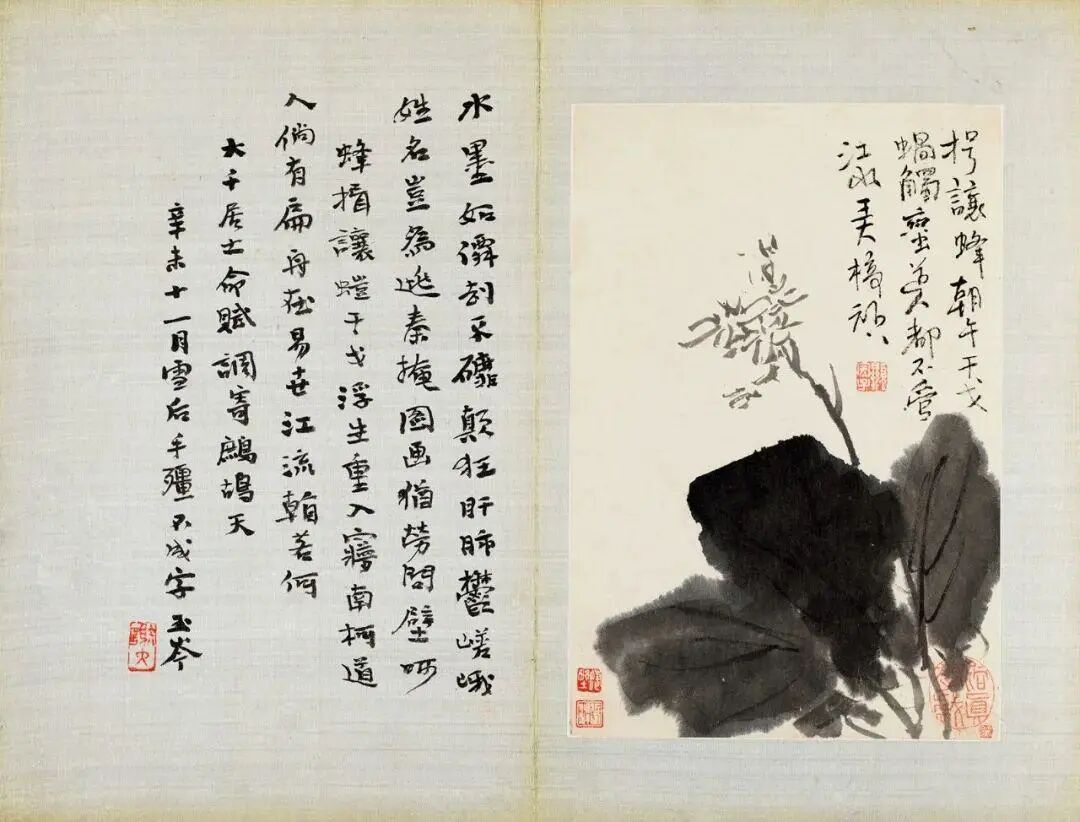 揖讓蜂朝午干戈
蝸觸蠻莫都不管
江
水墨如刮不礳顛狂肝肺鬱嵯峨
姓名豈為逃秦掩圖画猶勞問壁呵
蜂揖讓螘干戈浮生重入㝱南柯道
人倘有扁舟在易世江流賴若何
大千居士命賦調寄鷓鴣天
辛未十一月雪后手殭不成字玉岑